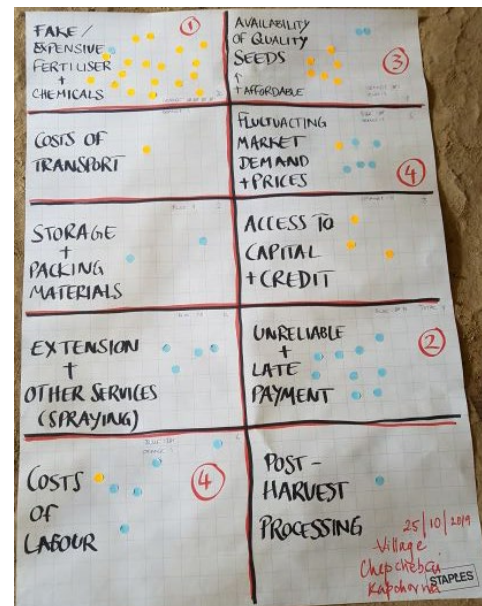 FAKE /
EXPENSIVE
FERTILISER
+
CHEMICALS
1
AVAILABILITY
OF QUALITY
SEEDS
+ AFFORDABLE
3
COSTS OF
TRANSPORT
FLUCTUACTING
MARKET
DEMAND
+ PRICES
4
STORAGE
+
PACKING
MATERIALS
ACCESS TO
CAPITAL
+ CREDIT
EXTENSION
+
OTHER SERVICES
(SPRAYING)
UNRELIABLE
+
LATE
PAYMENT
2
COSTS
OF
LABOUR
4
POST-
HARVEST
PROCESSING
25/10/2019
Village
STAPLES